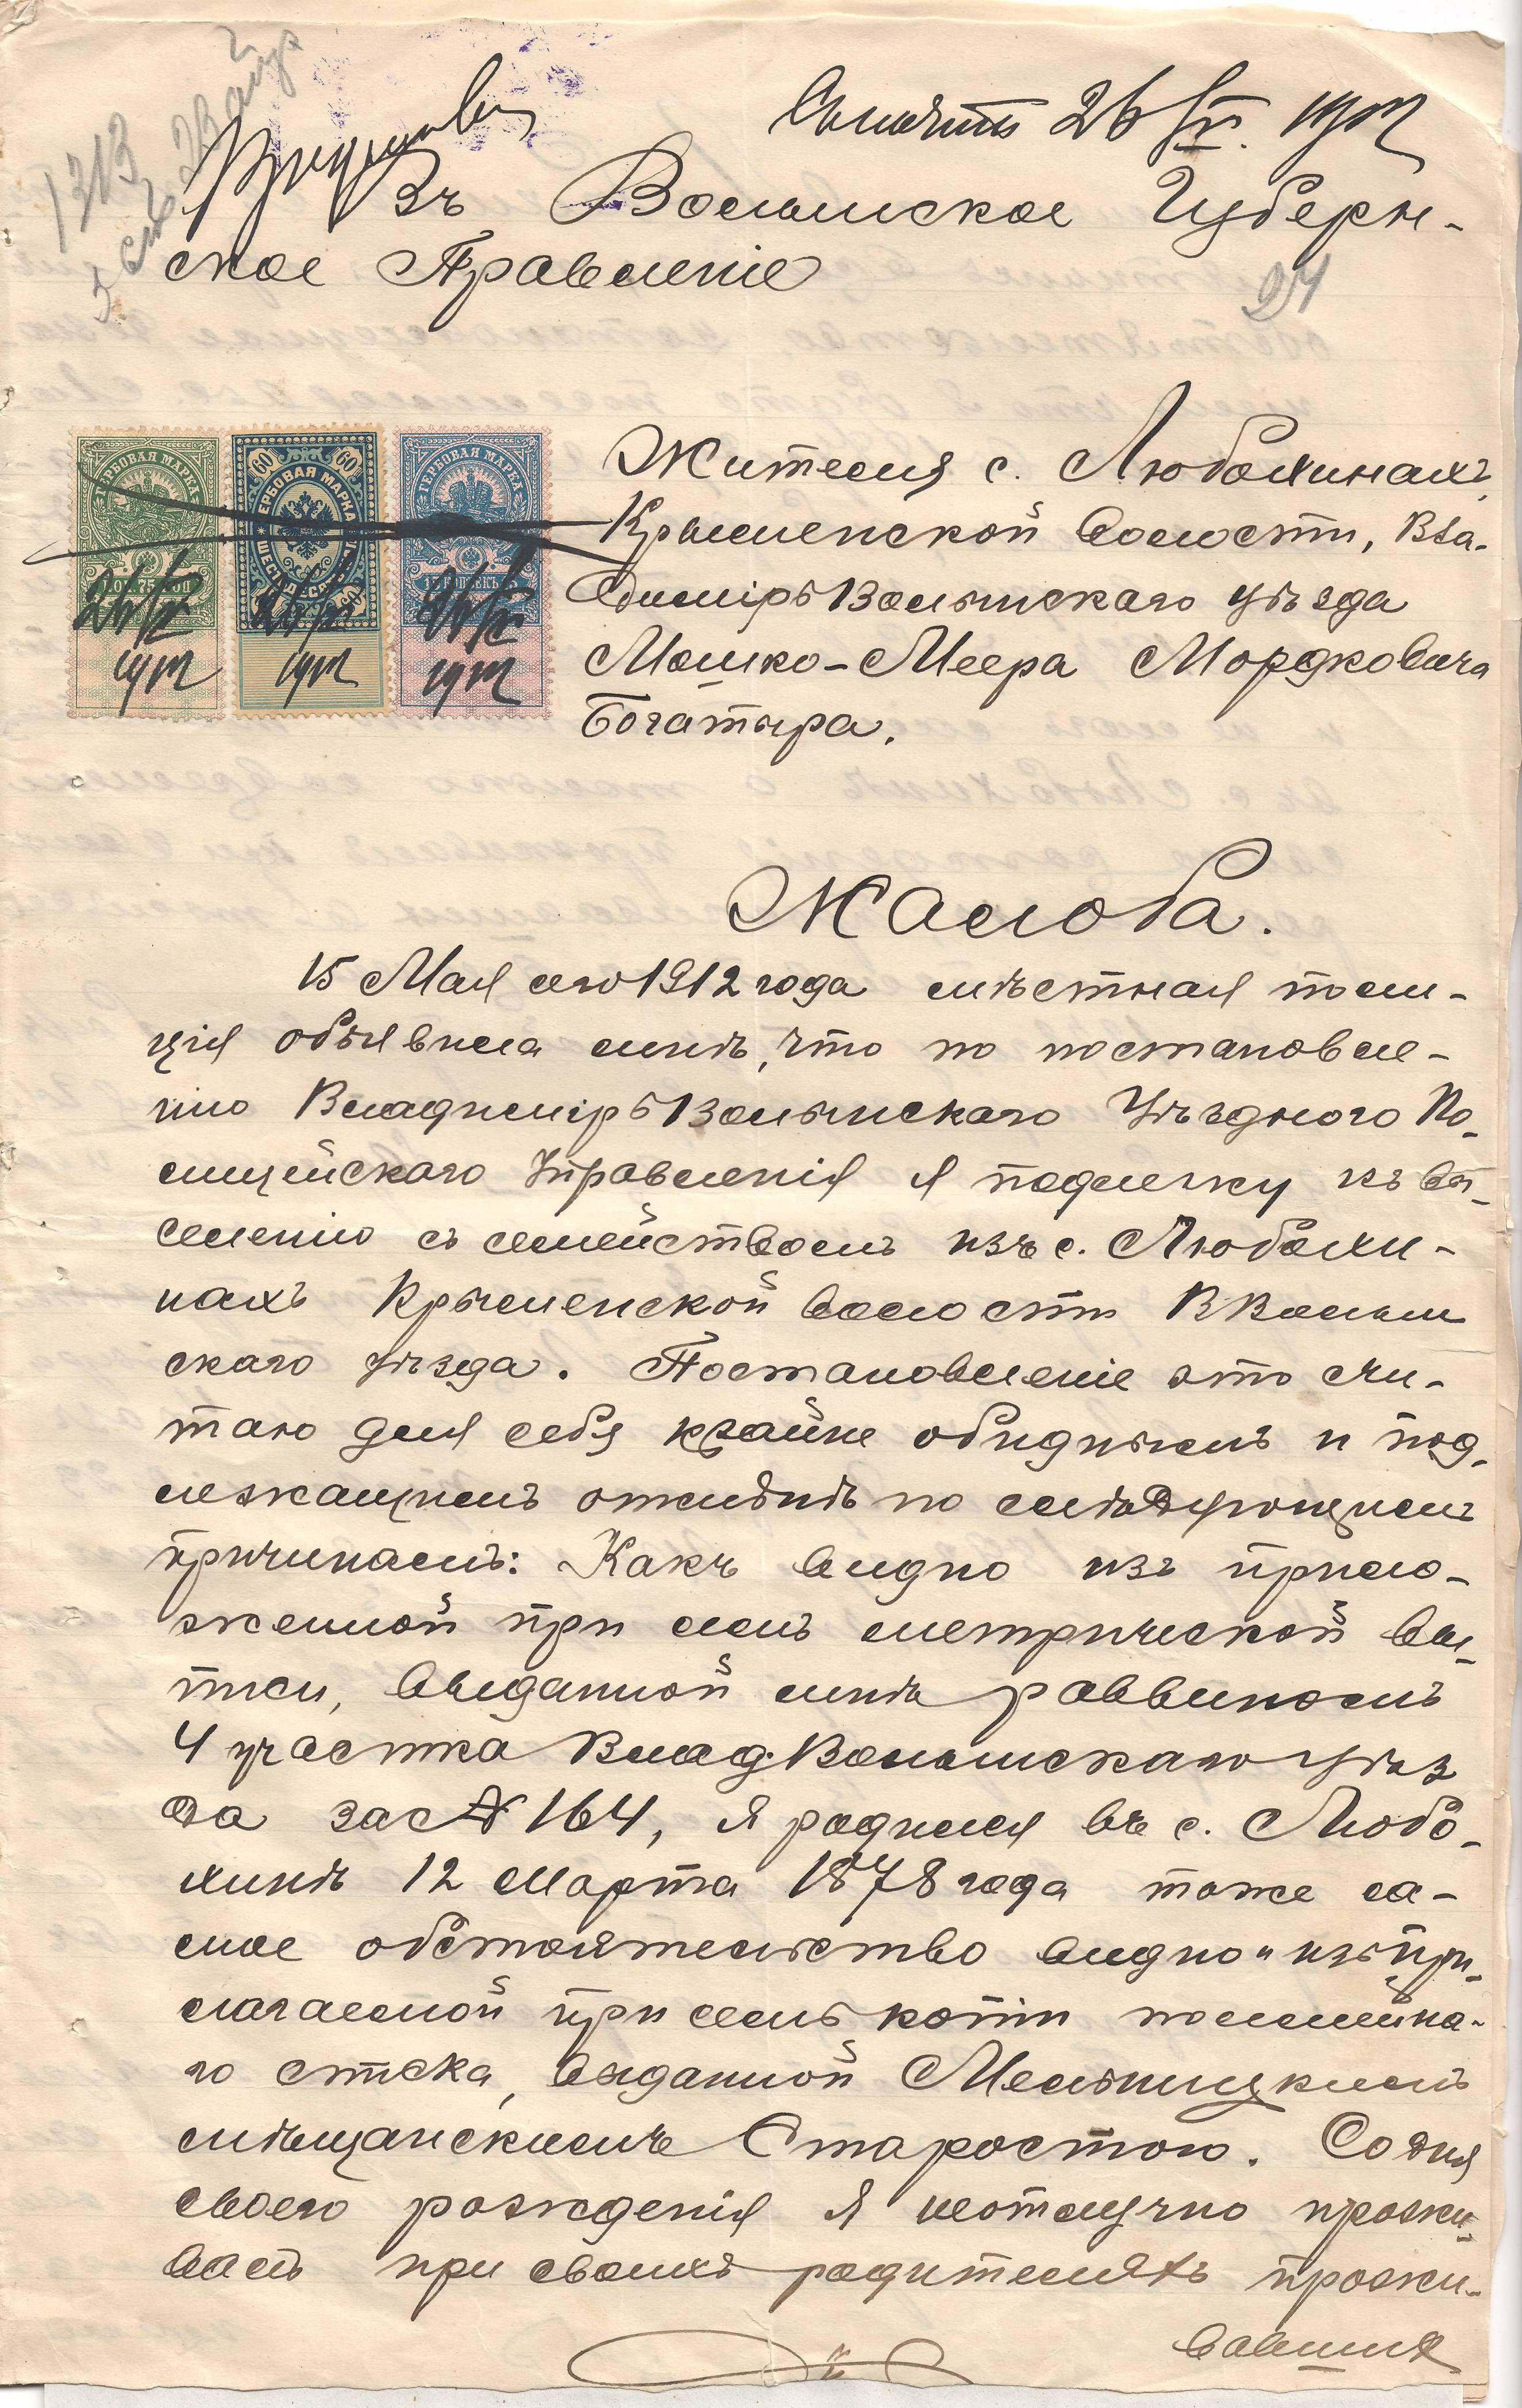 1313
26/IV. 1912
Въ Волынское Губерн-
ское Правленіе
24
ГЕРБОВАЯ МАРКА
60 60
ГЕРБОВАЯ МАРКА
ГЕРБОВАЯ МАРКА
75 КОП
ШЕСТЬДЕСЯТЪ
КОПѢЕКЪ
Жителя с. Любохинахъ
Крымненской волости, Вла-
димірВолынскаго уѣзда
Мошко-Меера Мордковича
Богатыра.
Жалоба.
15 Мая сего 1912 года мѣстная поли-
ція объявила мнѣ, что по постановле-
нію ВладимірВолынскаго Уѣзднаго По-
лицейскаго Управленія я подлежу къ вы-
селенію съ семействомъ изъ с. Любохи-
нахъ Крымненской волости ВВолын
скаго уѣзда. Постановленіе это счи-
таю для себя крайне обиднымъ и под-
лежащимъ отмѣнѣ по слѣдующимъ
причинамъ: Какъ видно изъ прило-
женной при семъ метрической вы-
писи, выданной мнѣ раввиномъ
4 участка Влад.Волынскаго уѣз
да за № 164, я родился въ с. Любо-
хинѣ 12 Марта 1878 года тоже са-
мое обстоятельство видно и изъ при-
лагаемой при семъ копіи посемейна-
го списка, выданной Мельницкимъ
мѣщанскимъ Старостою. Со дня
своего рожденія я неотлучно прожи-
валъ при своихъ родителяхъ прожи-
вавших